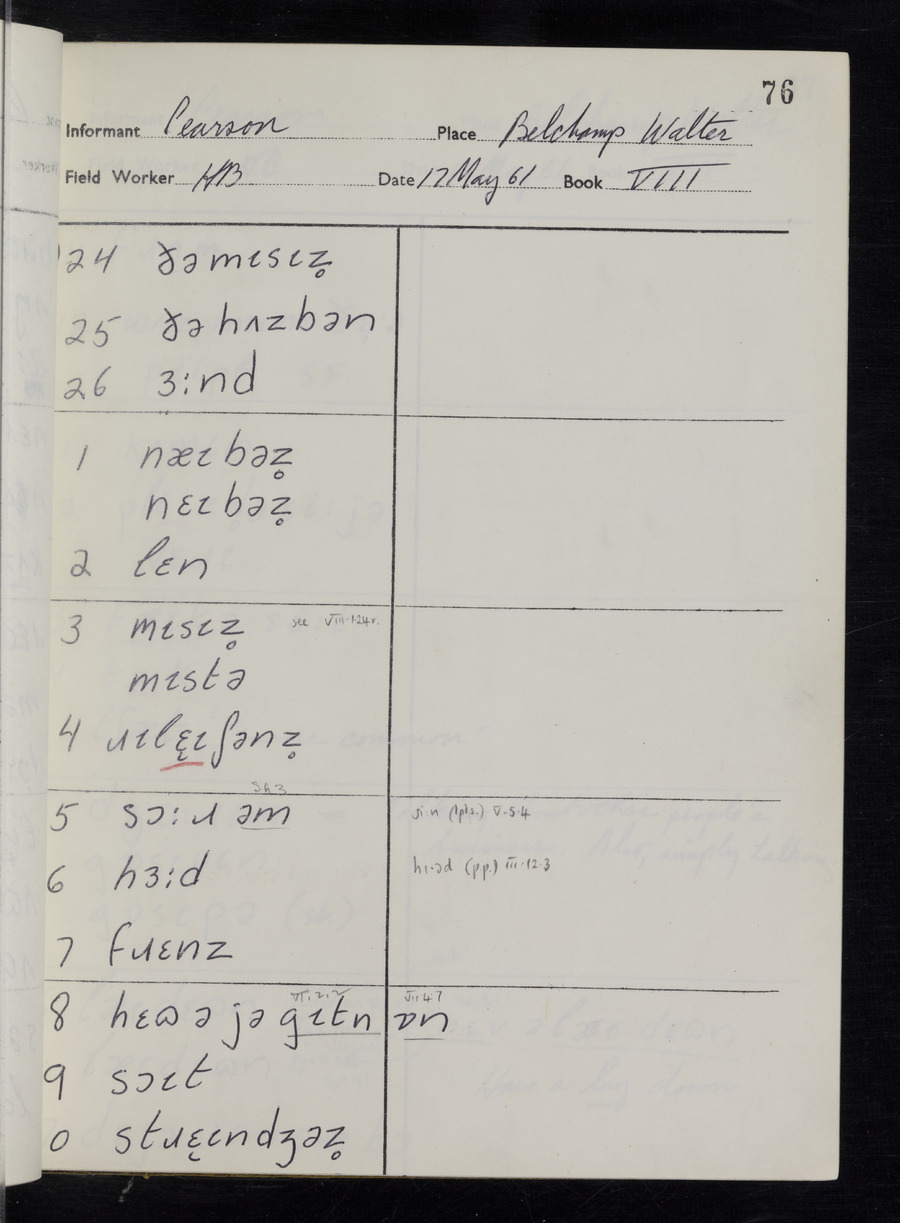 76
Informant Pearson Place Belchamp Walter
Field Worker HB Date 17 May 61 Book VIII
24 ðəmɪsɪz̥
25 ðəhʌzbən
26 ɜ:nd
1 næɪbəz̥
nɛɪbəz̥
2 lɛn
3 mɪsɪz̥ see VIII.1.24r.
mɪstə
4 ɹɪlɛ̝ɪʃənz̥
Sh 3
5 sɔ:ɹ əm si:n (1pts.) V.5.4
6 hɜ:d hɪ·əd (p.p.) III.12.3
7 fɹɛnz
VI.2.2 VII.4.7
8 hɛɷ ə jə gɪtn ɒn
9 sɔɪt
0 stɹɛ̝ɪndʒəz̥